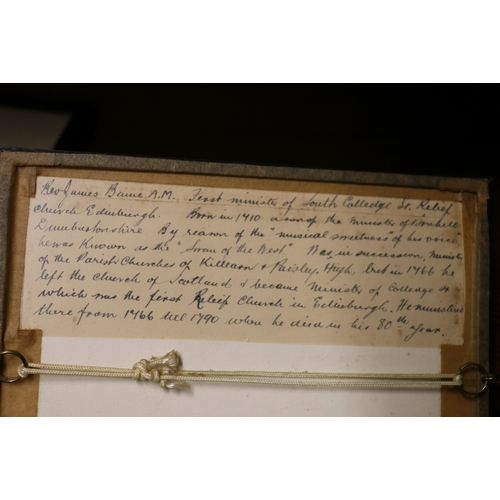 Rev James Baine A.M. First minister of South Colledge St. Relief
Church Edinburgh. Born in 1710 a son of the minister of Bonhill
Dumbartonshire By reason of the "musical sweetness" of his voice
he was known as the "Swan of the West" Was in succession, minister
of the Parish Churches of Killearn & Paisley, High, but in 1766 he
left the church of Scotland & became minister of College St
which was the first Relief Church in Edinburgh. He ministered
there from 1766 till 1790 when he died in his 80th year.